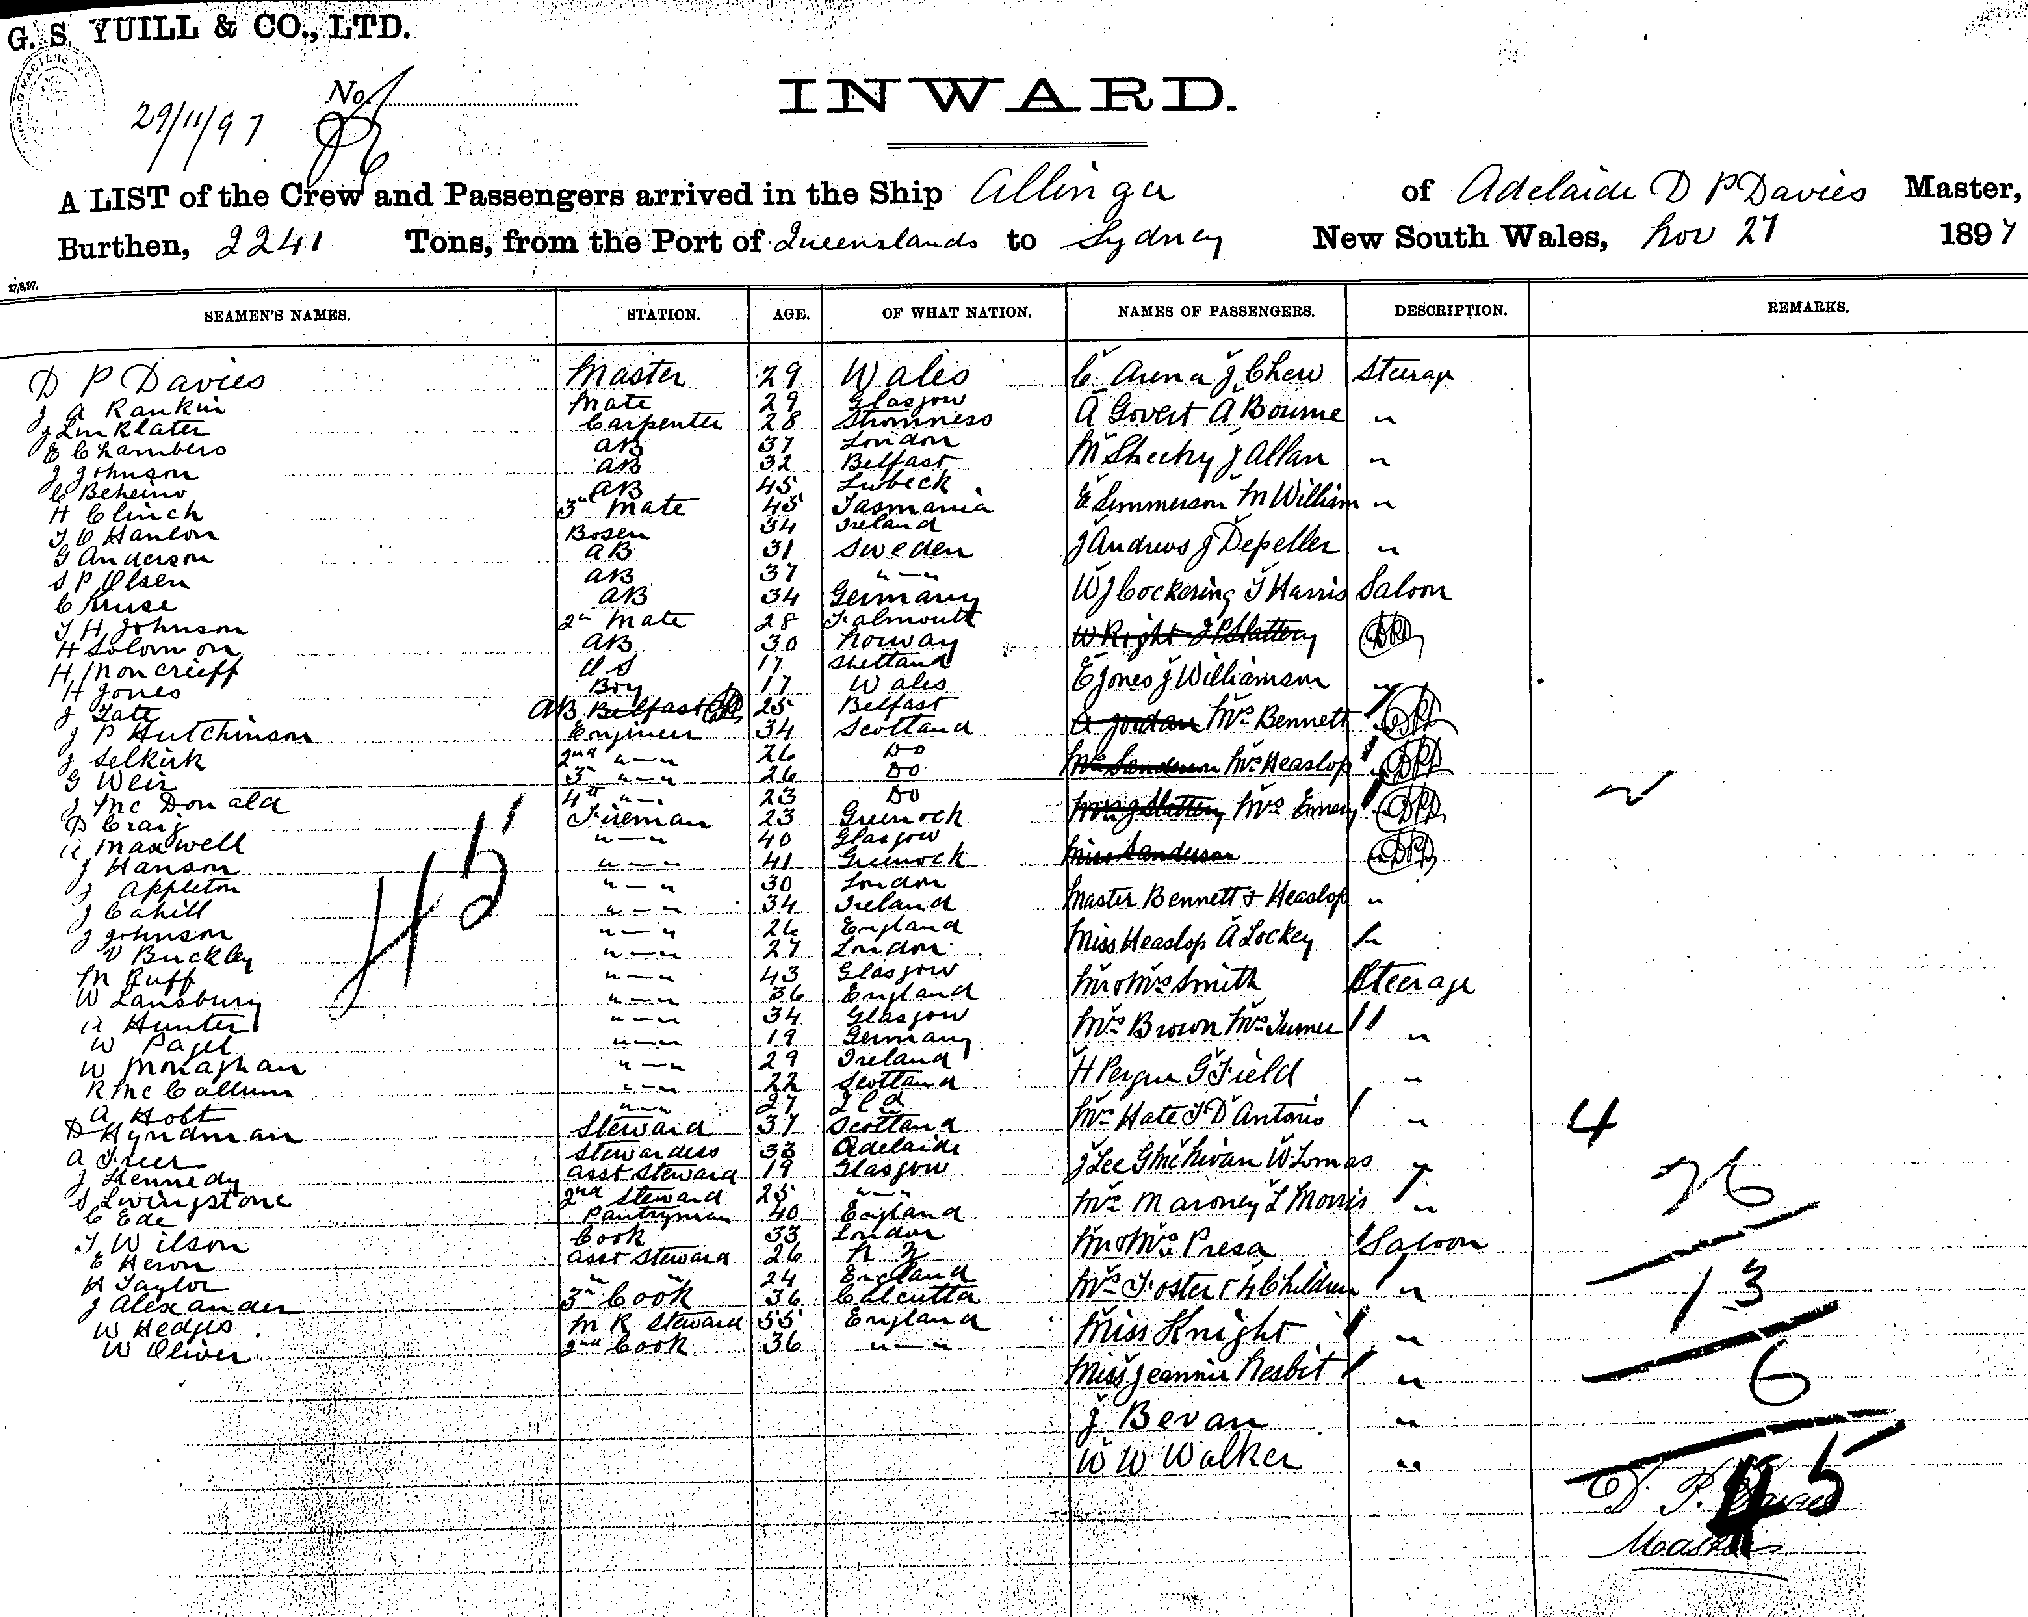 G. S. YUILL & CO., LTD.
No.
29/11/97
INWARD.
A LIST of the Crew and Passengers arrived in the Ship Allinga of Adelaide D P Davies Master,
Burthen, 2241 Tons, from the Port of Queenslands to Sydney New South Wales, Nov 27 1897
27/8/97.
SEAMEN'S NAMES. STATION. AGE. OF WHAT NATION. NAMES OF PASSENGERS. DESCRIPTION. REMARKS.
D P Davies Master 29 Wales C Arena J Chew Steerage
J A Rankin Mate 29 Glasgow
J Linklater Carpenter 28 Stromness A Govert A Bourne "
E Chambers AB 37 London
J Johnson AB 32 Belfast M Sheehy J Allan "
C Beheino AB 45 Lubeck
H Clinch 3rd Mate 45 Tasmania E Simmerson M William "
T C Hanlon Bosen 34 Ireland
G Anderson AB 31 Sweden J Andrews J Depeller "
S P Olsen AB 37 " — "
C Kruse AB 34 Germany W J Cockering T Harris Saloon
T H Johnson 2nd Mate 28 Falmouth
H Solomon AB 30 Norway W Right J P Slattery
H Moncrieff O S 17 Shetland
H Jones Boy 17 Wales E Jones J Williamson "
J Tate AB Belfast 25 Belfast
J P Hutchinson Engineer 34 Scotland A Jordan Mrs Bennett "
J Selkirk 2nd " — " 26 Do
G Weir 3rd " — " 26 Do Mrs Sanderson Mrs Heaslop "
J McDonald 4th " — " 23 Do
D Craig Fireman 23 Greenock Mrs J Slattery Mrs Emery "
A Maxwell " — " 40 Glasgow
J Hanson " — " 41 Greenock Miss Sanderson
J Appleton " — " 30 London
J Cahill " — " 34 Ireland Master Bennett & Heaslop "
J Johnson " — " 26 England
D Buckley " — " 27 London Miss Heaslop A Lockey "
M Ruff " — " 43 Glasgow
W Lansbury " — " 36 England Mr & Mrs Smith Steerage
A Hunter " — " 34 Glasgow
W Pagel " — " 19 Germany Mrs Brown Mrs Turner "
W Monaghan " — " 29 Ireland
R McCallum " — " 22 Scotland H Peyne G Field "
A Holt " — " 27
D Hyndman Steward 37 Scotland Mrs Hate T D'Antoris " 4
A Freer Stewardess 33 Adelaide
J Kennedy Asst Steward 19 Glasgow J Lee G McKivan W Lomas "
S Livingstone 2nd Steward 25 " — " 26
C Ede Pantryman 40 England Mrs Maroney L Morris "
T Wilson Cook 33 London
E Heron Asst Steward 26 N Z Mr & Mrs Presa Saloon
A Taylor " " 24 England 13
J Alexander 3rd Cook 36 Calcutta Mrs Foster & 4 Children "
W Hedges M R Steward 55 England Miss Knight "
W Oliver 2nd Cook 36 " — "
45
Miss Jeannie Nesbit " 6
J Bevan "
W W Walker "
45
D. P. Davies
Master